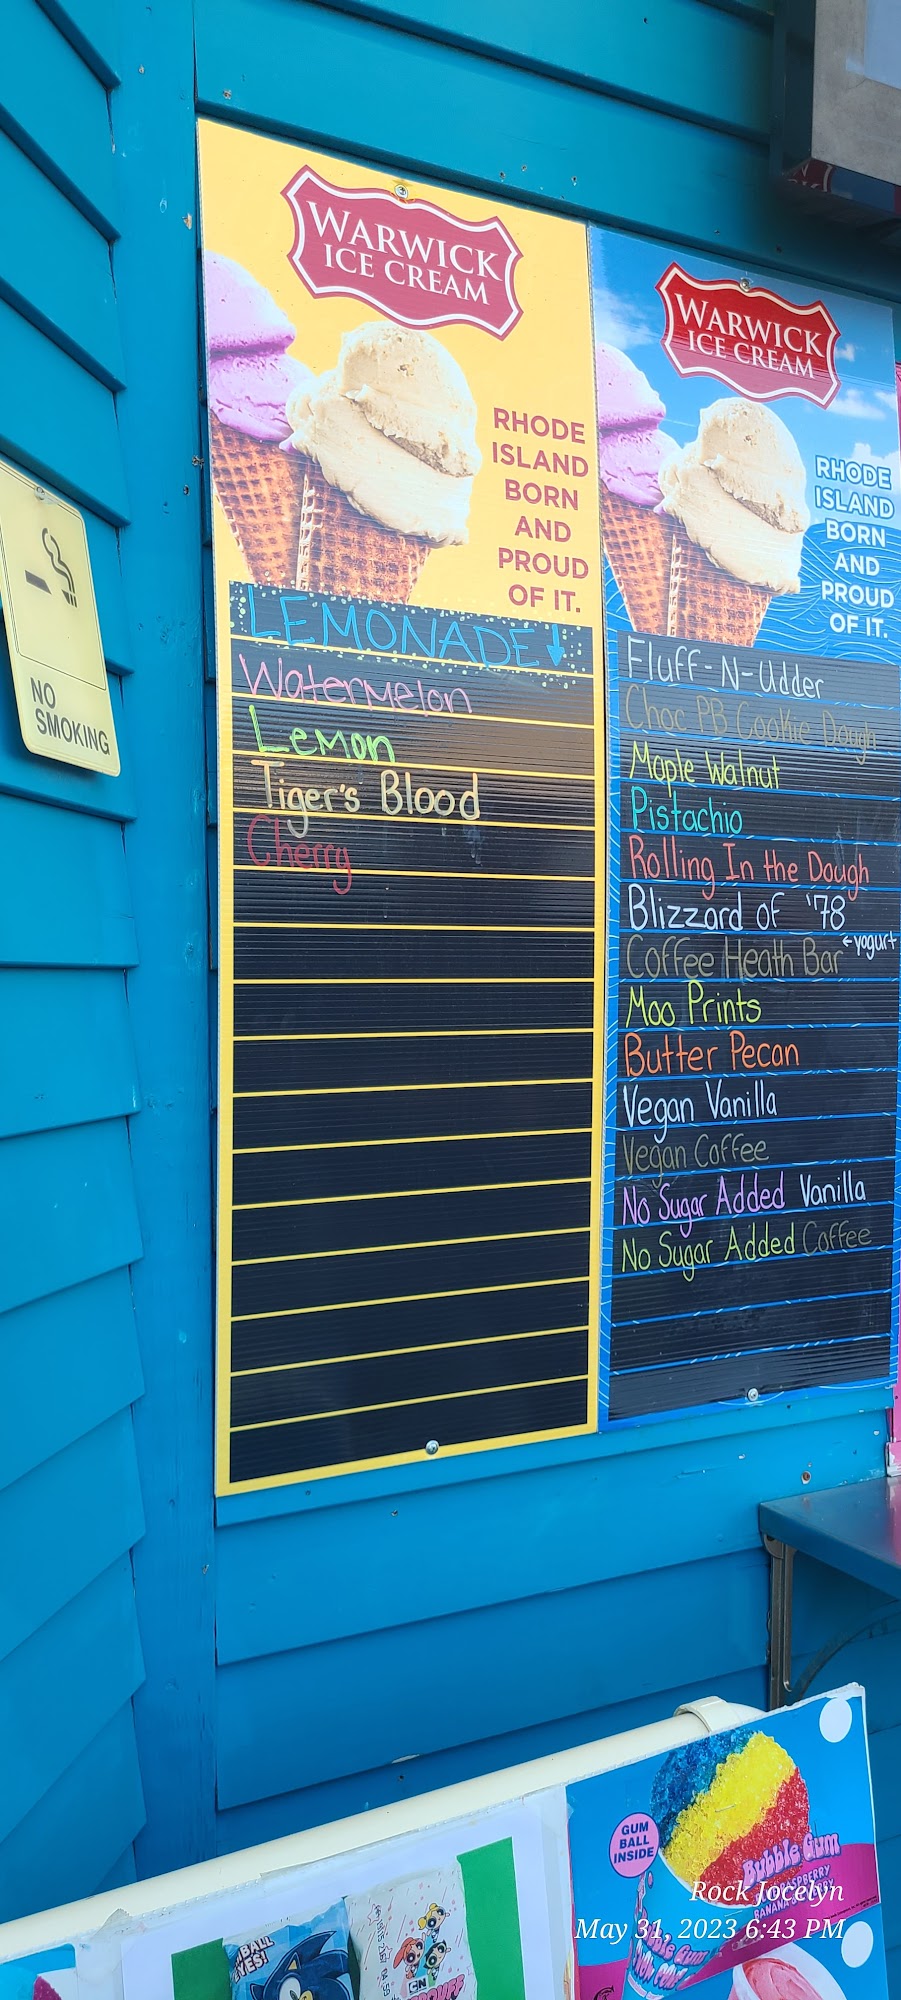 WARWICK
ICE CREAM
RHODE
ISLAND
BORN
AND
PROUD
OF IT.
LEMONADE
Watermelon
Lemon
Tiger's Blood
Cherry
WARWICK
ICE CREAM
RHODE
ISLAND
BORN
AND
PROUD
OF IT.
Fluff-N-Udder
Choc PB Cookie Dough
Maple Walnut
Pistachio
Rolling In the Dough
Blizzard of '78
←yogurt
Coffee Heath Bar
Moo Prints
Butter Pecan
Vegan Vanilla
Vegan Coffee
No Sugar Added Vanilla
No Sugar Added Coffee
NO
SMOKING
GUM
BALL
INSIDE
Bubble Gum
Rock Jocelyn
May 31, 2023 6:43 PM
EYES!
CN